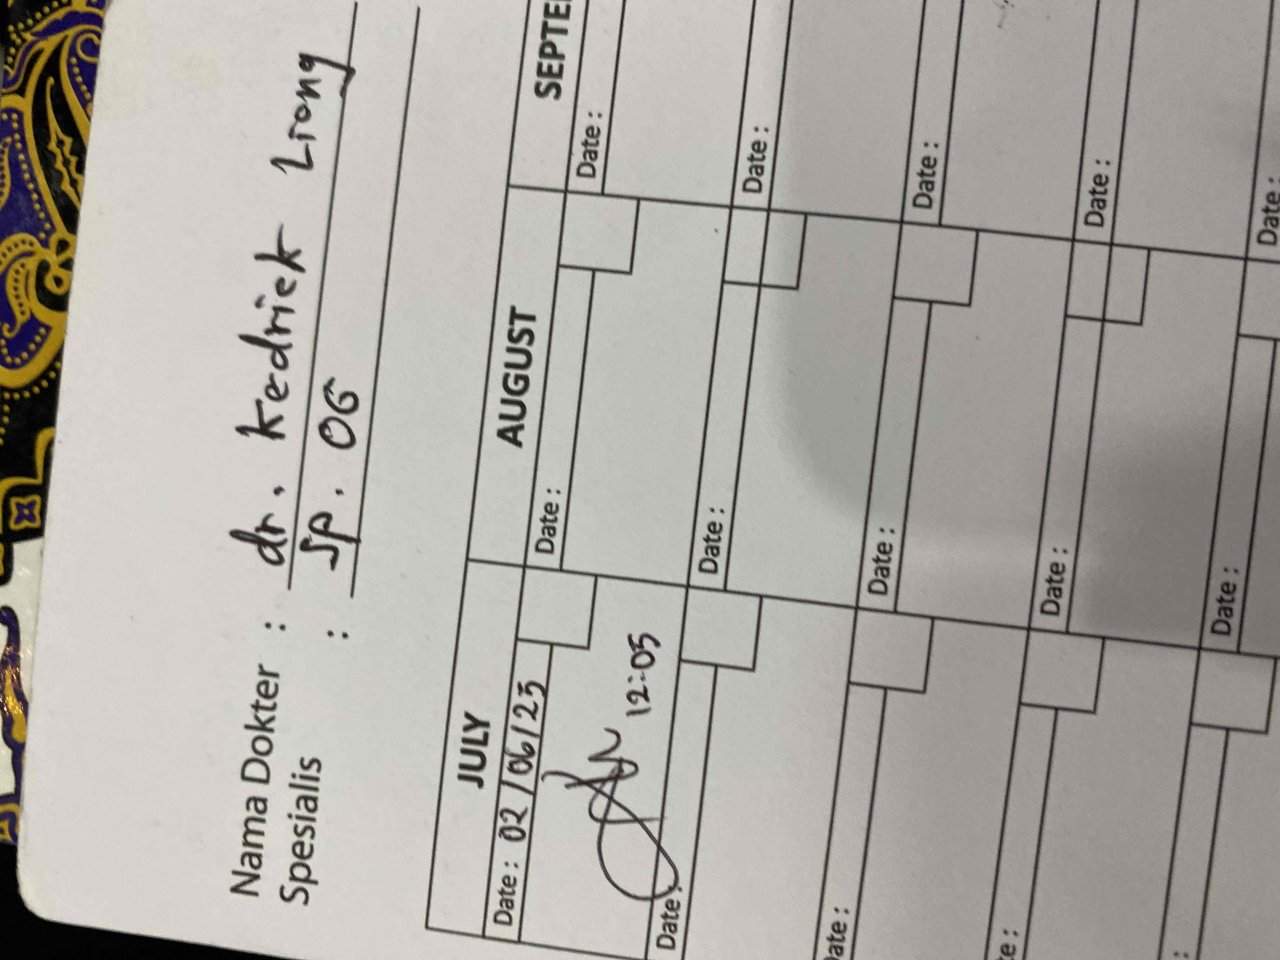 Nama Dokter : dr. Kedriek Liong
Spesialis : Sp. OG
JULY AUGUST SEPTE
Date : 02/06/23 Date : Date :
12:05
Date : Date : Date :
Date : Date : Date :
te : Date : Date :
: Date : Date :